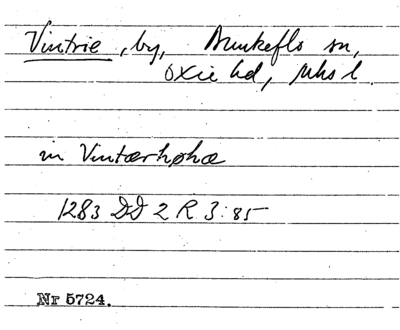 Vintrie, by, Bunkeflo sn,
Oxie hd, Mhs l.
in Vintærhøhæ
1283 DD 2 R 3:85
Nr 5724.